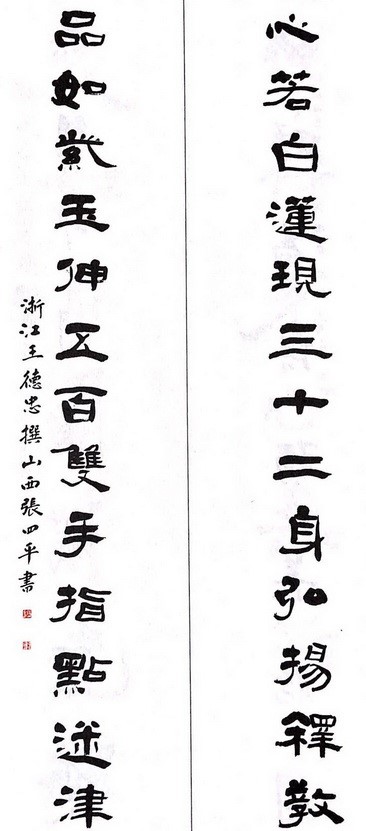 心若白蓮現三十二身弘揚釋教
品如紫玉伸五百雙手指點迷津
浙江王德忠撰山西張四平書